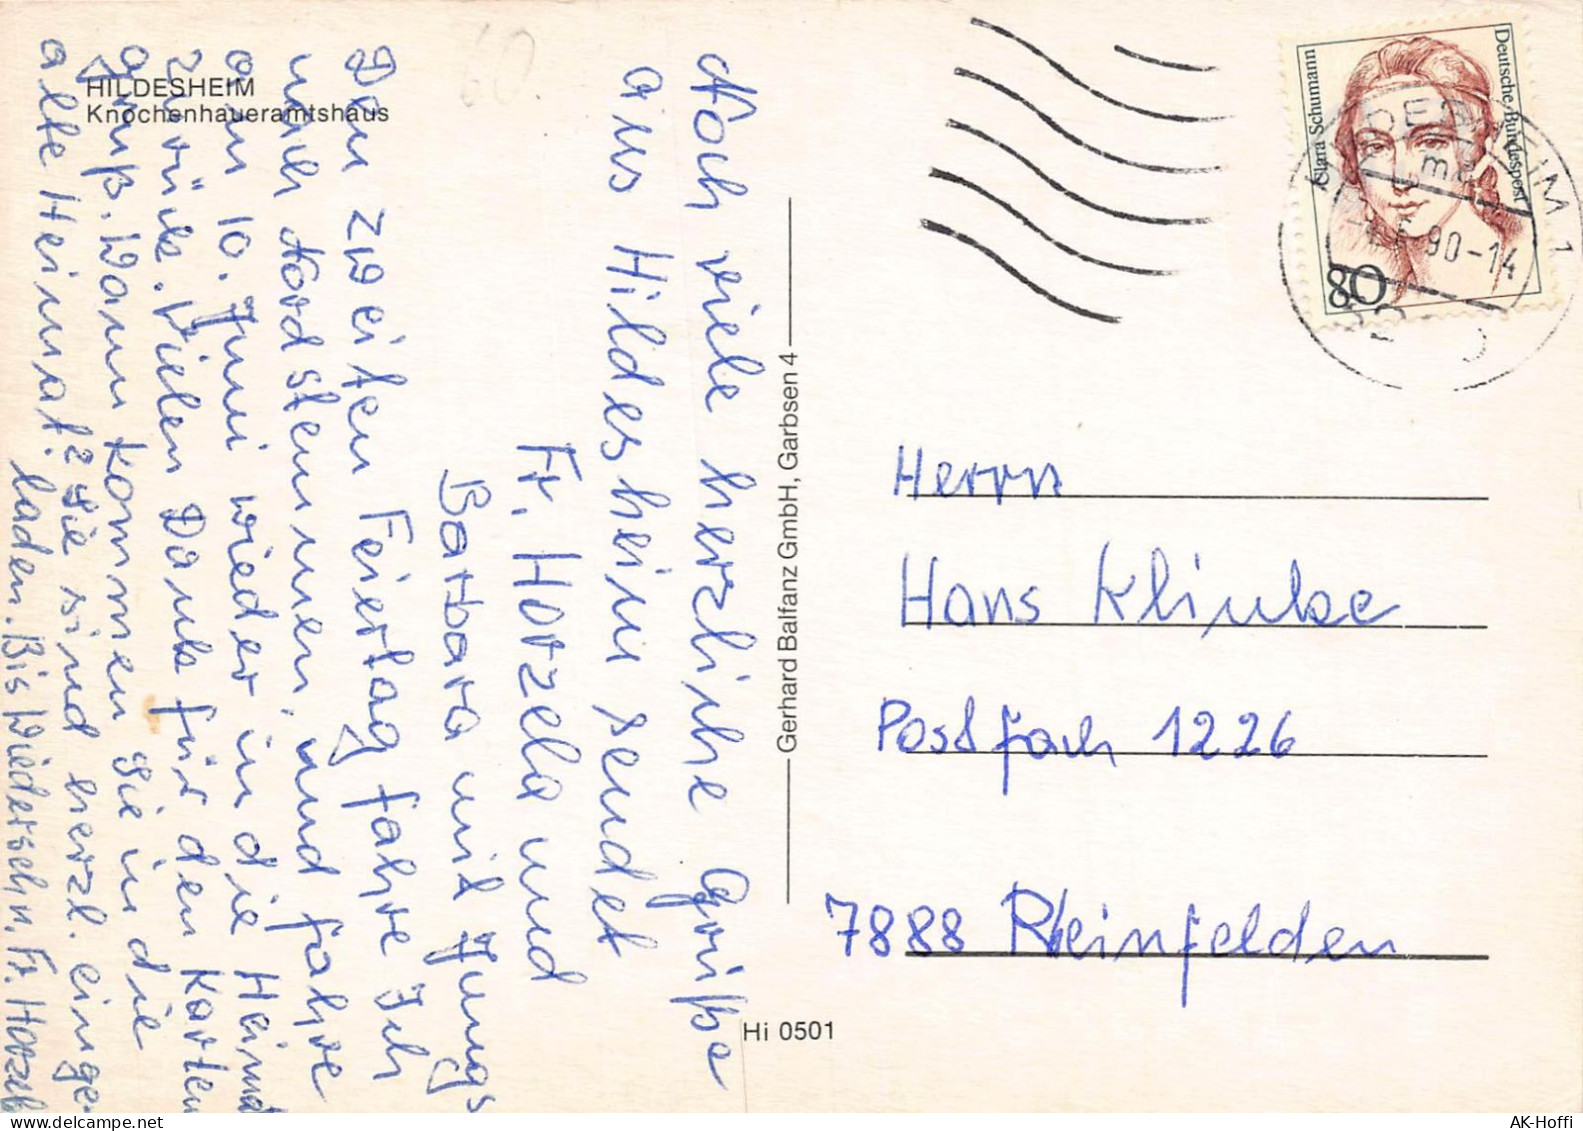 HILDESHEIM
Knochenhaueramtshaus
60
Noch viele herzliche Grüße
aus Hildesheim sendet
Fr. Horzela und
Barbara mit Jungs
Den zweiten Feiertag fahre Ich
nach Nordstemmen, und fahre
am 10. Juni wieder in die Heimat
zurück. Vielen Dank für den Karten
gruß. Wann kommen Sie in die
alte Heimat? Sie sind herzl. einge-
laden. Bis Wiedersehn, Fr. Horzela
Gerhard Balfanz GmbH, Garbsen 4
Hi 0501
Clara Schumann
Deutsche Bundespost
80
90-14
Herrn
Hans Klinke
Postfach 1226
7888 Rheinfelden
delcampe.net
AK-Hoffi